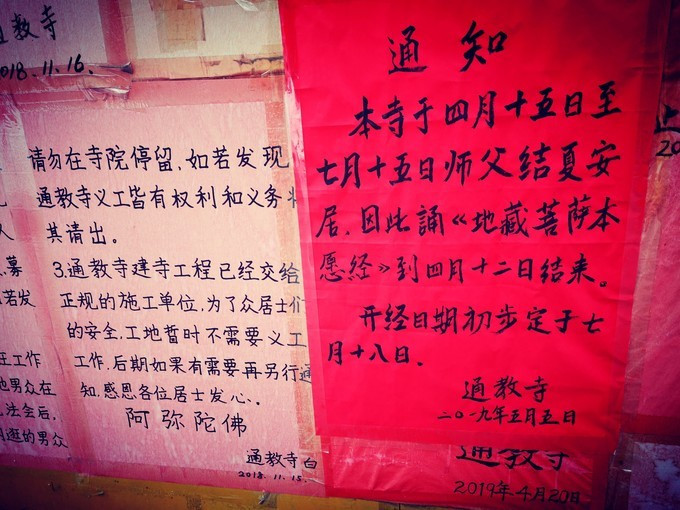 教寺
2018.11.16.
请勿在寺院停留,如若发现
通教寺义工皆有权利和义务将
其请出。
3.通教寺建寺工程已经交给
正规的施工单位,为了众居士们
的安全,工地暂时不需要义工
工作,后期如果有需要再另行通
知,感恩各位居士发心。
阿弥陀佛
通教寺白
2018.11.15.
募
若发
工作
男众在
法会后,
逛的男众
通知
本寺于四月十五日至
七月十五日师父结夏安
居,因此誦《地藏菩萨本
愿经》到四月十二日结束。
开经日期初步定于七
月十八日.
通教寺
二〇一九年五月五日
通教寺
2019年4月20日